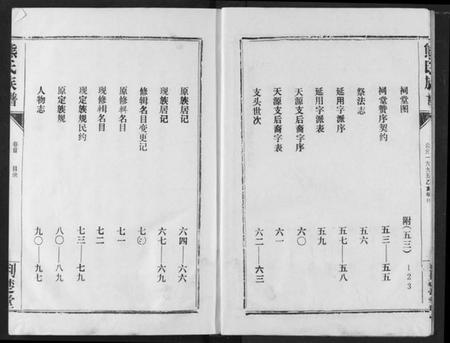 熊氏族譜
公元一九九五乙亥年
祠堂图 附(五三) 123
祠堂赞序契约 五三——五五
祭法志 五六
延用字派序 五七——五八
延用字派表 五九
天源支后裔字序 六〇
天源支后裔字表 六一
支头世次 六二——六三
熊氏族谱
卷首 目录
原族居记 六四——六六
现族居记 六七——六九
修辑名目变更记 七〇
原修辑名目 七一
现修辑名目 七二
现定族规民约 七三——七九
原定族规 八〇——八九
人物志 九〇——九七